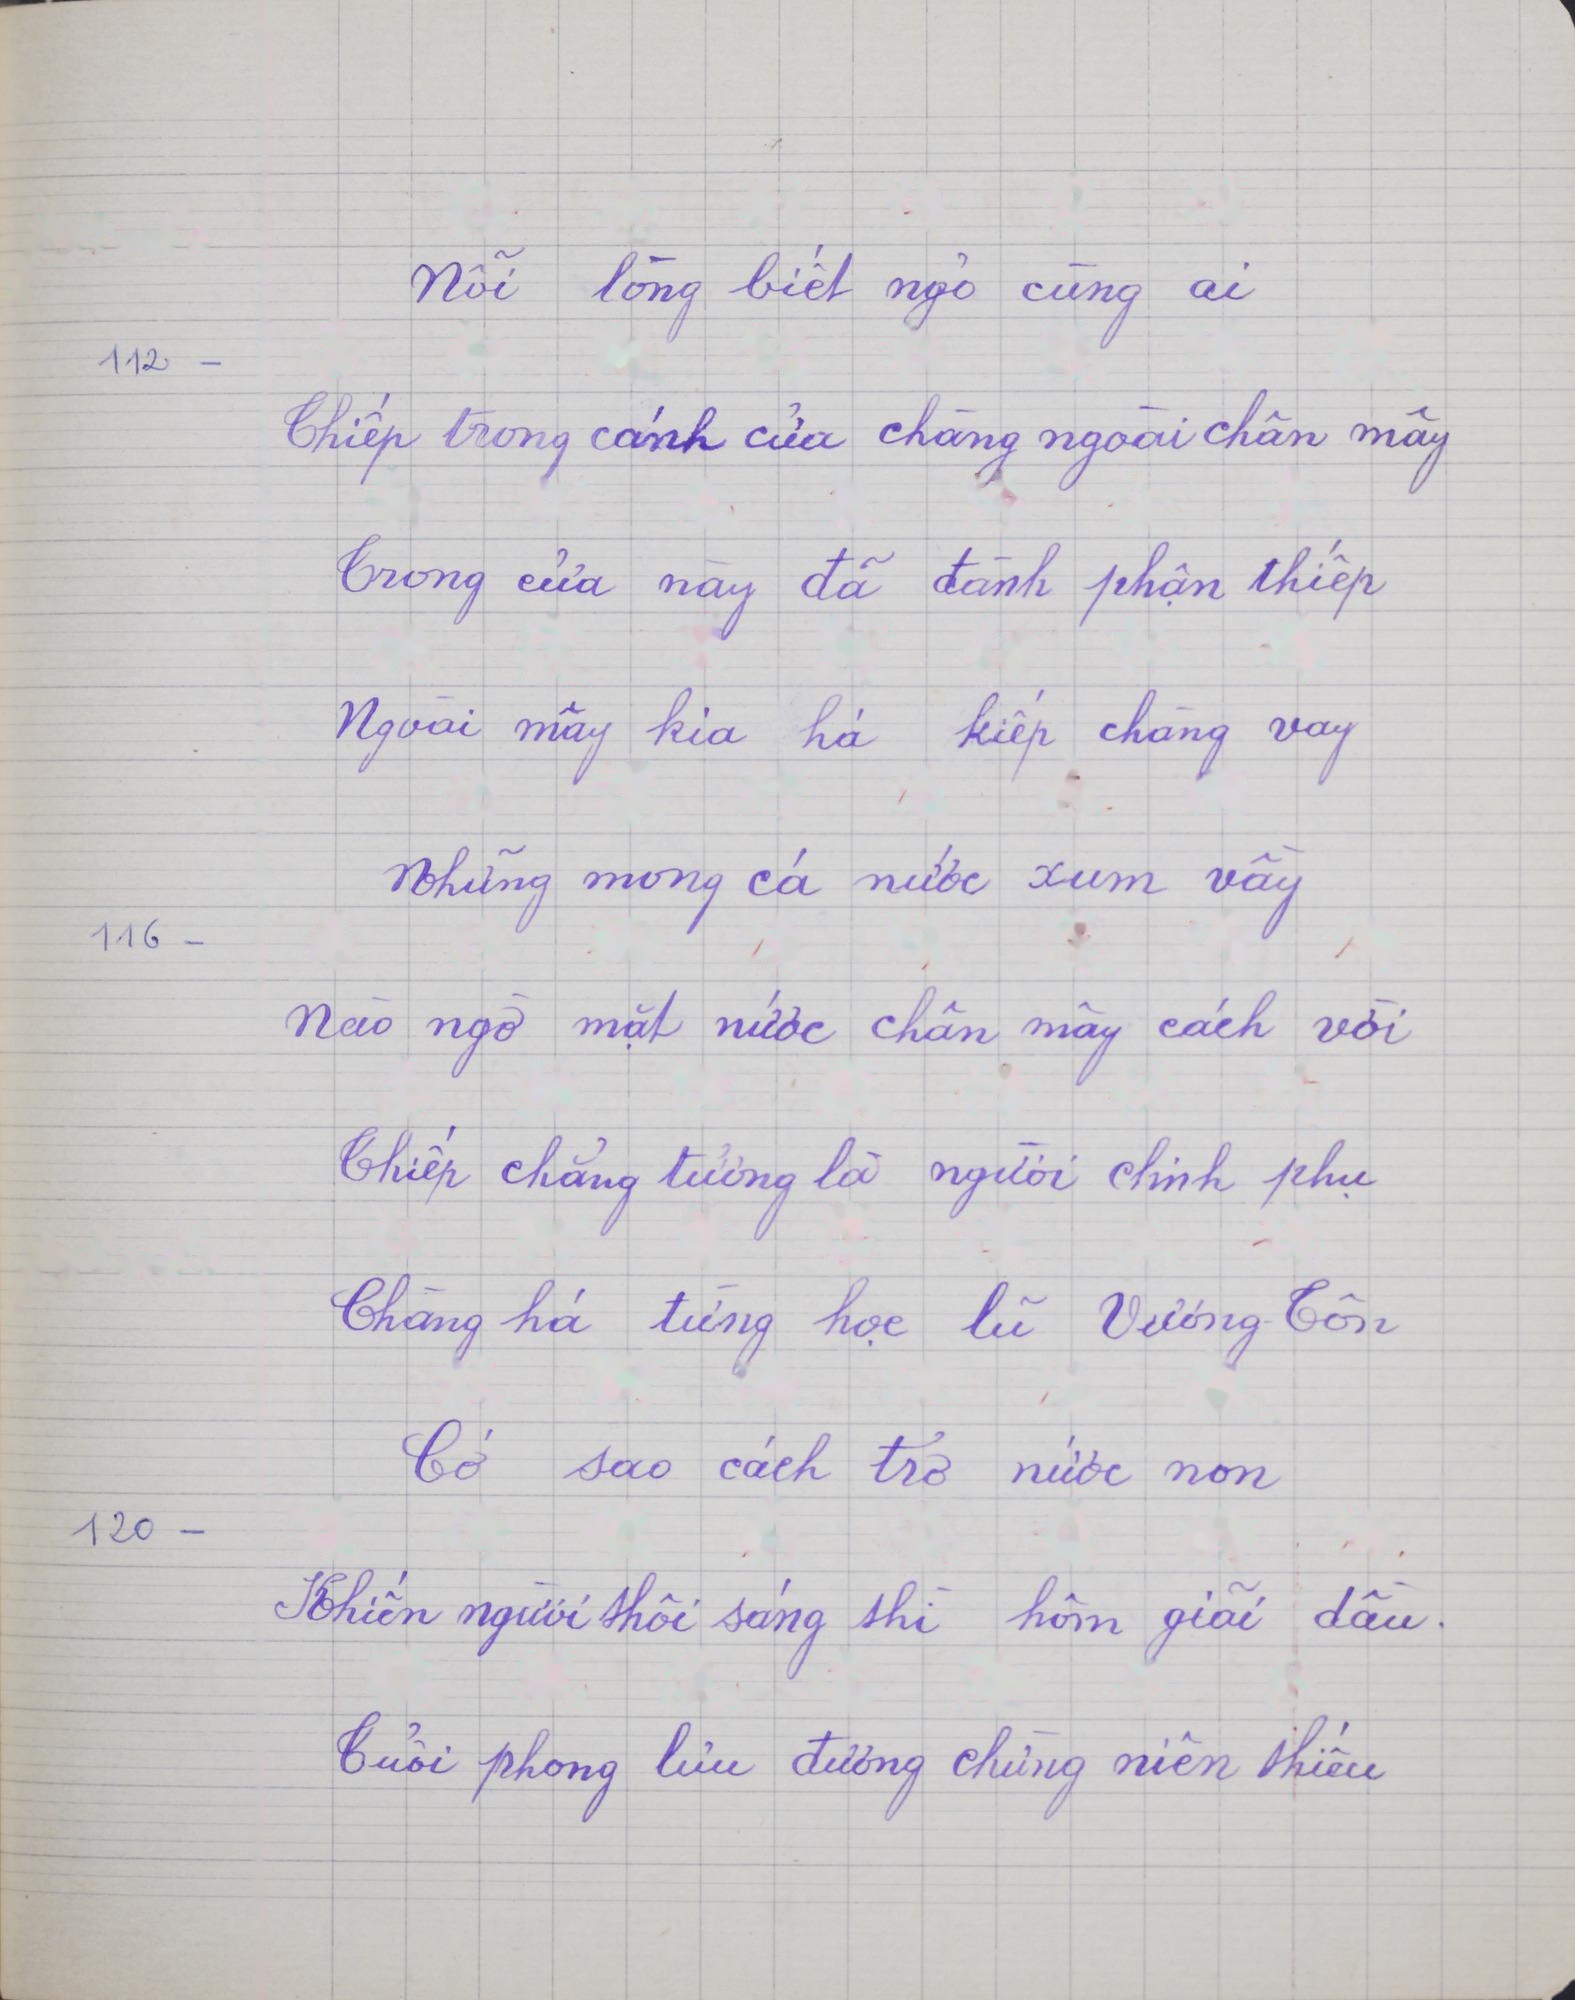 Nỗi lòng biết ngỏ cùng ai
112 -
Thiếp trong cánh cửa chàng ngoài chân mây
Trong cửa này đã đành phận thiếp
Ngoài mây kia há kiếp chàng vay
Những mong cá nước xum vầy
116 -
Nào ngờ mặt nước chân mây cách vời
Thiếp chẳng tưởng là người chinh phụ
Chàng há từng học lũ Vương-Tôn
Cớ sao cách trở nước non
120 -
Khiến người thôi sáng thì hôm giãi dầu.
Tuổi phong lưu đương chừng niên thiếu